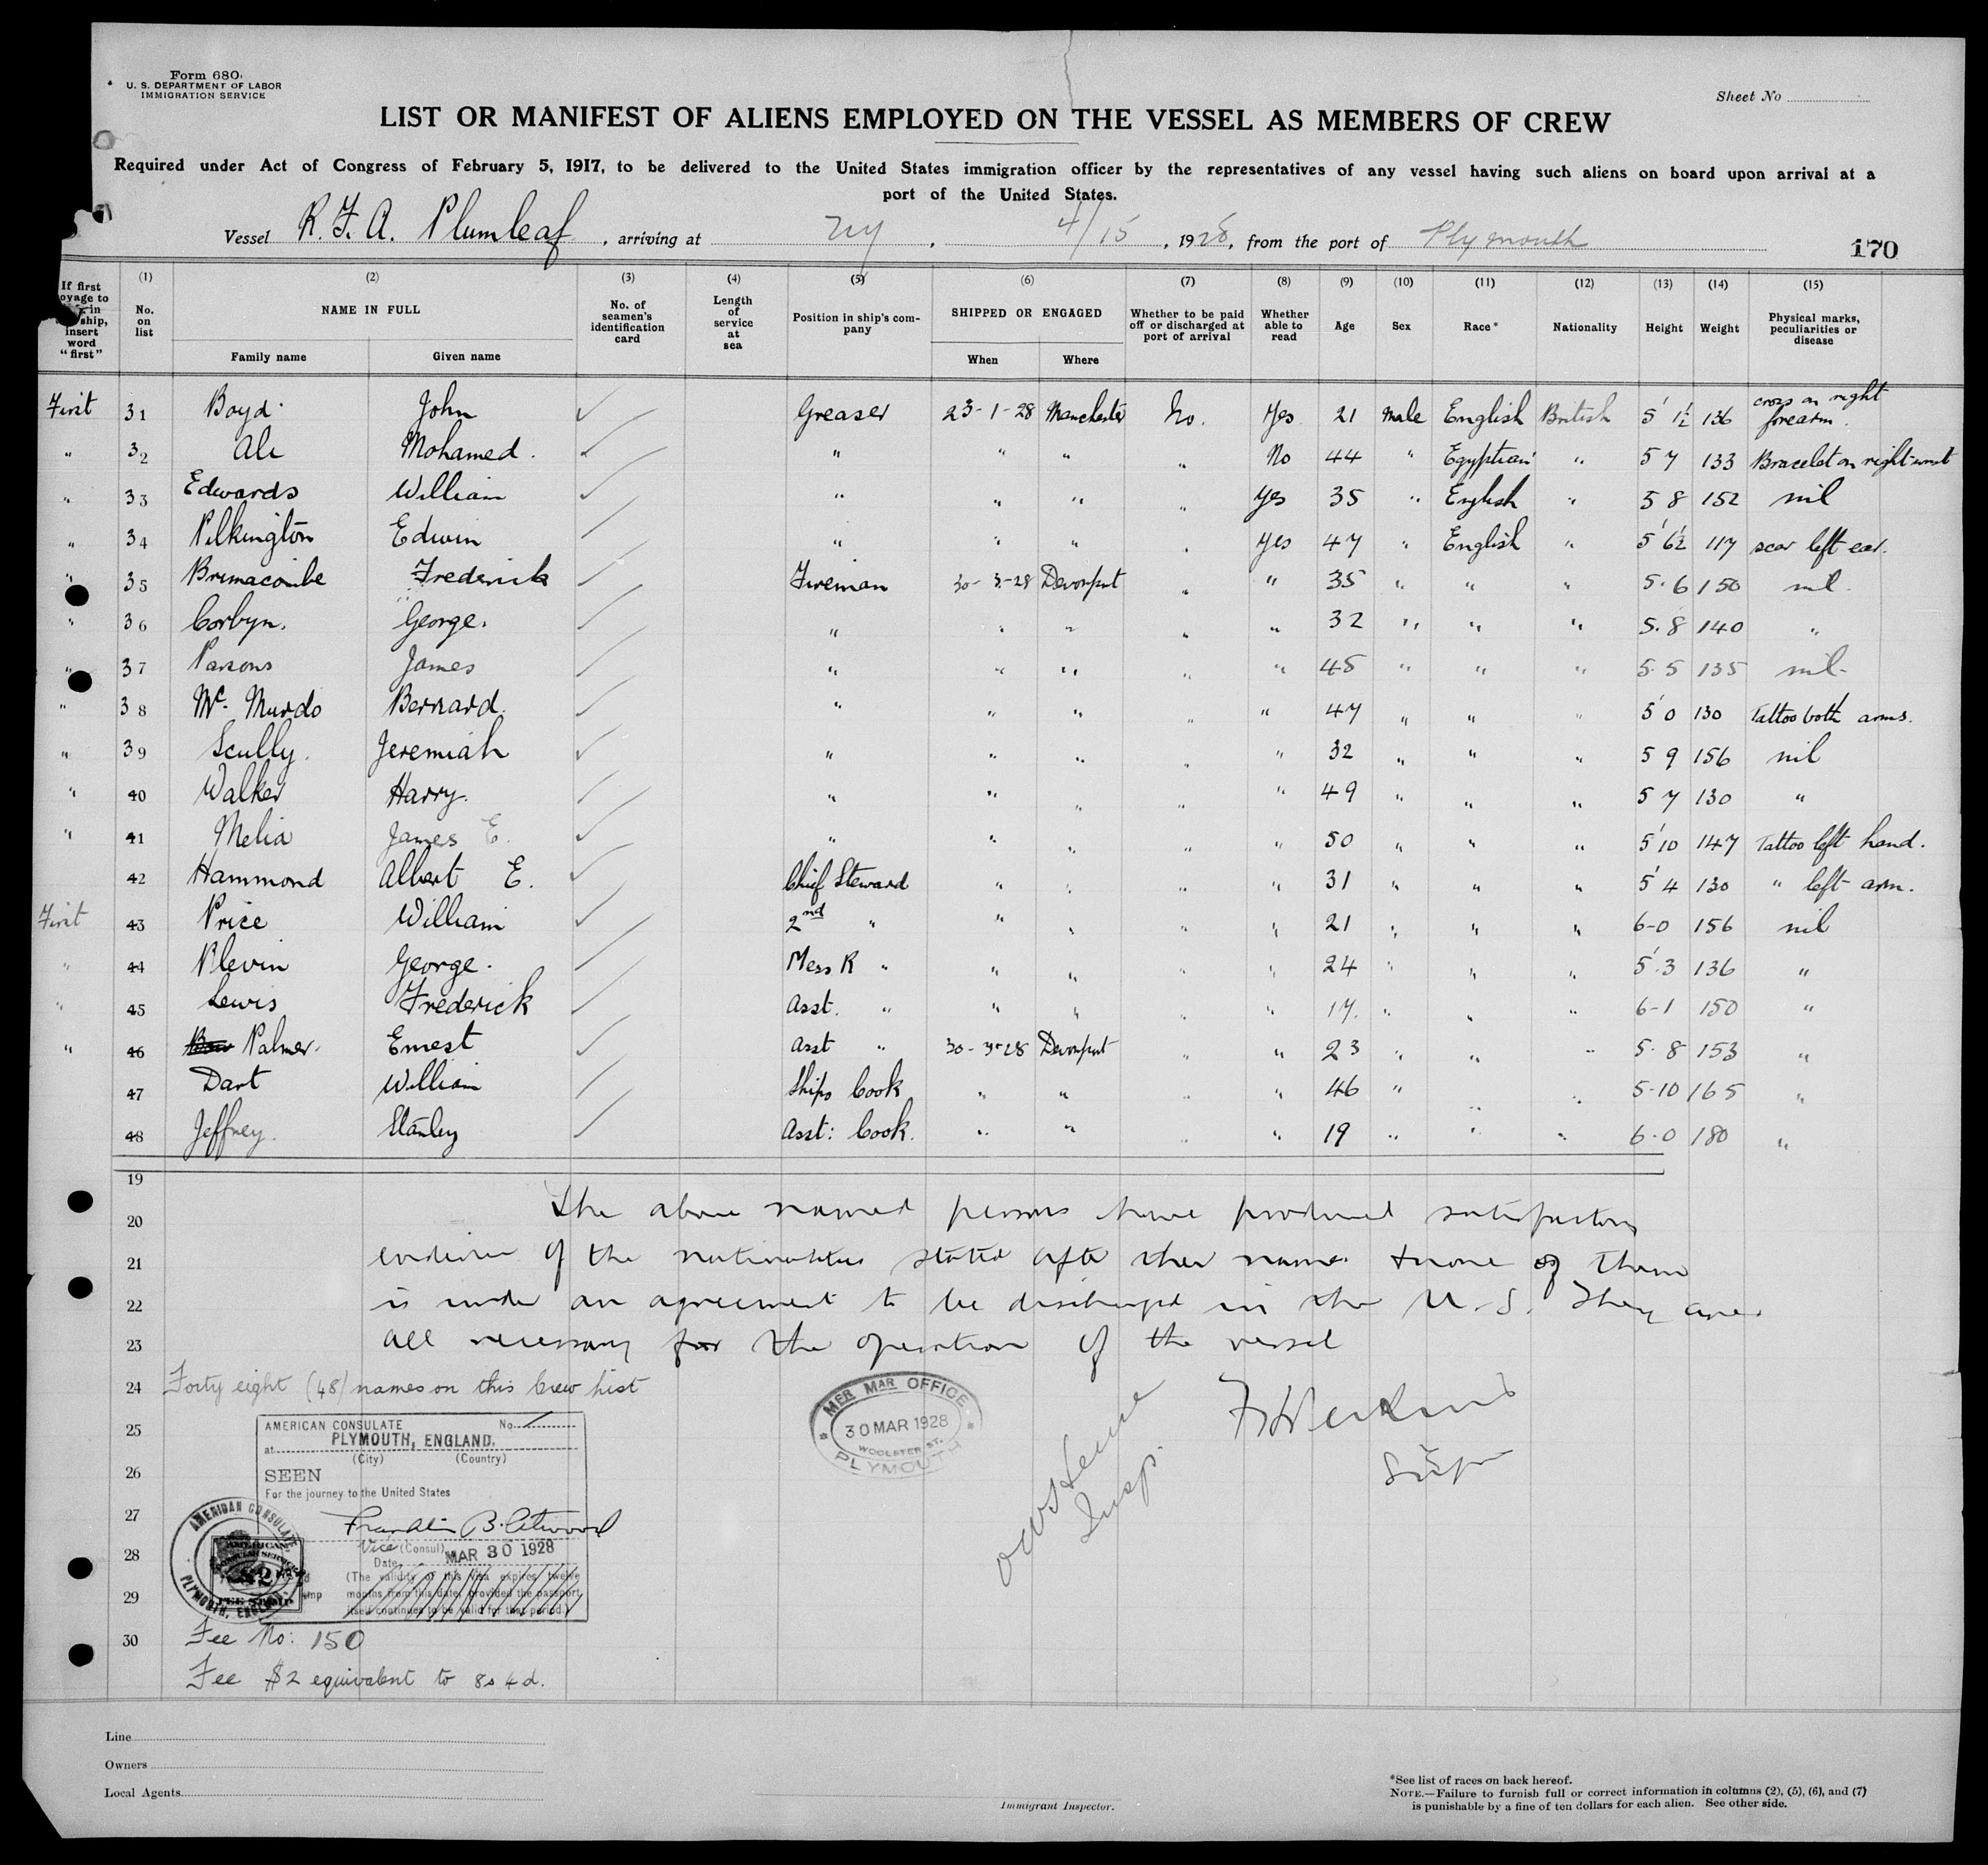 Form 680.
U. S. DEPARTMENT OF LABOR
IMMIGRATION SERVICE
Sheet No
LIST OR MANIFEST OF ALIENS EMPLOYED ON THE VESSEL AS MEMBERS OF CREW
Required under Act of Congress of February 5, 1917, to be delivered to the United States immigration officer by the representatives of any vessel having such aliens on board upon arrival at a
port of the United States.
Vessel R. F. A. Plumleaf, arriving at NY, 4/15, 1928, from the port of Plymouth
170
If first voyage to in ship, insert word "first"
(1) No. on list
(2) NAME IN FULL Family name Given name
(3) No. of seamen's identification card
(4) Length of service at sea
(5) Position in ship's company
(6) SHIPPED OR ENGAGED When Where
(7) Whether to be paid off or discharged at port of arrival
(8) Whether able to read
(9) Age
(10) Sex
(11) Race*
(12) Nationality
(13) Height
(14) Weight
(15) Physical marks, peculiarities or disease
First 31 Boyd John Greaser 23-1-28 Manchester No. Yes 21 Male English British 5' 1½ 136 cross on right forearm.
" 32 Ali Mohamed. " " " " No 44 " Egyptian " 5 7 133 Bracelet on right wrist
" 33 Edwards William " " " " Yes 35 " English " 5 8 152 nil
" 34 Pilkington Edwin " " " " Yes 47 " English " 5' 6½ 117 scar left ear.
" 35 Brimacombe Frederick Fireman 30-3-28 Devonport " " 35 " " " 5.6 150 nil.
" 36 Corbyn. George. " " " " " 32 " " " 5.8 140 "
" 37 Parsons James " " " " " 45 " " " 5.5 135 nil.
" 38 Mc. Murdo Bernard. " " " " " 47 " " " 5' 0 130 Tattoo both arms.
" 39 Scully. Jeremiah " " " " " 32 " " " 5 9 156 nil
" 40 Walker Harry. " " " " " 49 " " " 5 7 130 "
" 41 Melia James E. " " " " " 50 " " " 5' 10 147 Tattoo left hand.
42 Hammond Albert E. Chief Steward " " " " 31 " " " 5' 4 130 " left arm.
First 43 Price William 2nd " " " " " 21 " " " 6-0 156 nil
" 44 Blevin George. Mess R " " " " " 24 " " " 5'.3 136 "
" 45 Lewis Frederick Asst. " " " " " 17. " " " 6-1 150 "
" 46 Palmer. Ernest Asst " 30-3-28 Devonport " " 23 " " " 5.8 153 "
47 Dart William Ships Cook " " " " 46 " " " 5-10 165 "
48 Jeffrey. Stanley Asst: Cook. " " " " 19 " " " 6.0 180 "
19
20 The above named persons have produced satisfactory
21 evidence of the nationalities stated after their names & none of them
22 is under an agreement to be discharged in the U.S. They are
23 all necessary for the operation of the vessel
24 Forty eight (48) names on this Crew List
25
26
27
28
29
30
MER MAR OFFICE.
30 MAR 1928
WOOLSTER ST.
PLYMOUTH
Supr
Insp.
AMERICAN CONSULATE No.
at PLYMOUTH, ENGLAND.
(City) (Country)
SEEN
For the journey to the United States
Franklin B. Atwood
Vice (Consul)
Date MAR 30 1928
(The validity of this visa expires twelve
months from this date, provided the passport
itself continues to be valid for that period.)
AMERICAN CONSULATE
PLYMOUTH, ENGLAND
AMERICAN
CONSULAR SERVICE
$2
FEE STAMP
Fee No: 150
Fee $2 equivalent to 8s 4d.
Line
Owners
Local Agents
Immigrant Inspector.
*See list of races on back hereof.
NOTE.—Failure to furnish full or correct information in columns (2), (5), (6), and (7)
is punishable by a fine of ten dollars for each alien. See other side.